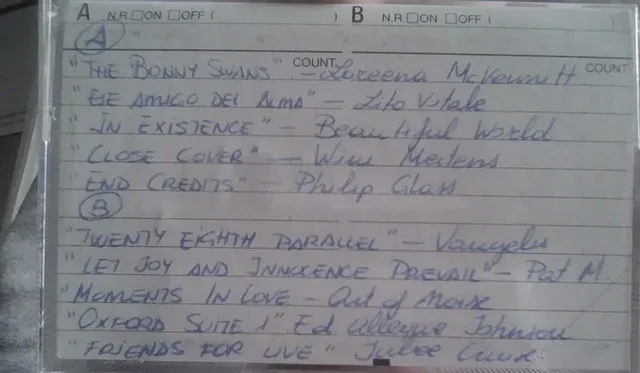 A N.R. □ON □OFF ( ) B N.R. □ON □OFF ( )
A
COUNT COUNT
"THE BONNY SWANS" - Loreena McKennitt
"ESE AMIGO DEL ALMA" - Lito Vitale
"IN EXISTENCE" - Beautiful World
"CLOSE COVER" - Wim Mertens
"END CREDITS" - Philip Glass
B
"TWENTY EIGHTH PARALLEL" - Vangelis
"LET JOY AND INNOCENCE PREVAIL" - Pat M.
"MOMENTS IN LOVE - Art of Noise
"OXFORD SUITE 1" Ed Alleyne Johnson
"FRIENDS FOR LIVE" Julee Cruise